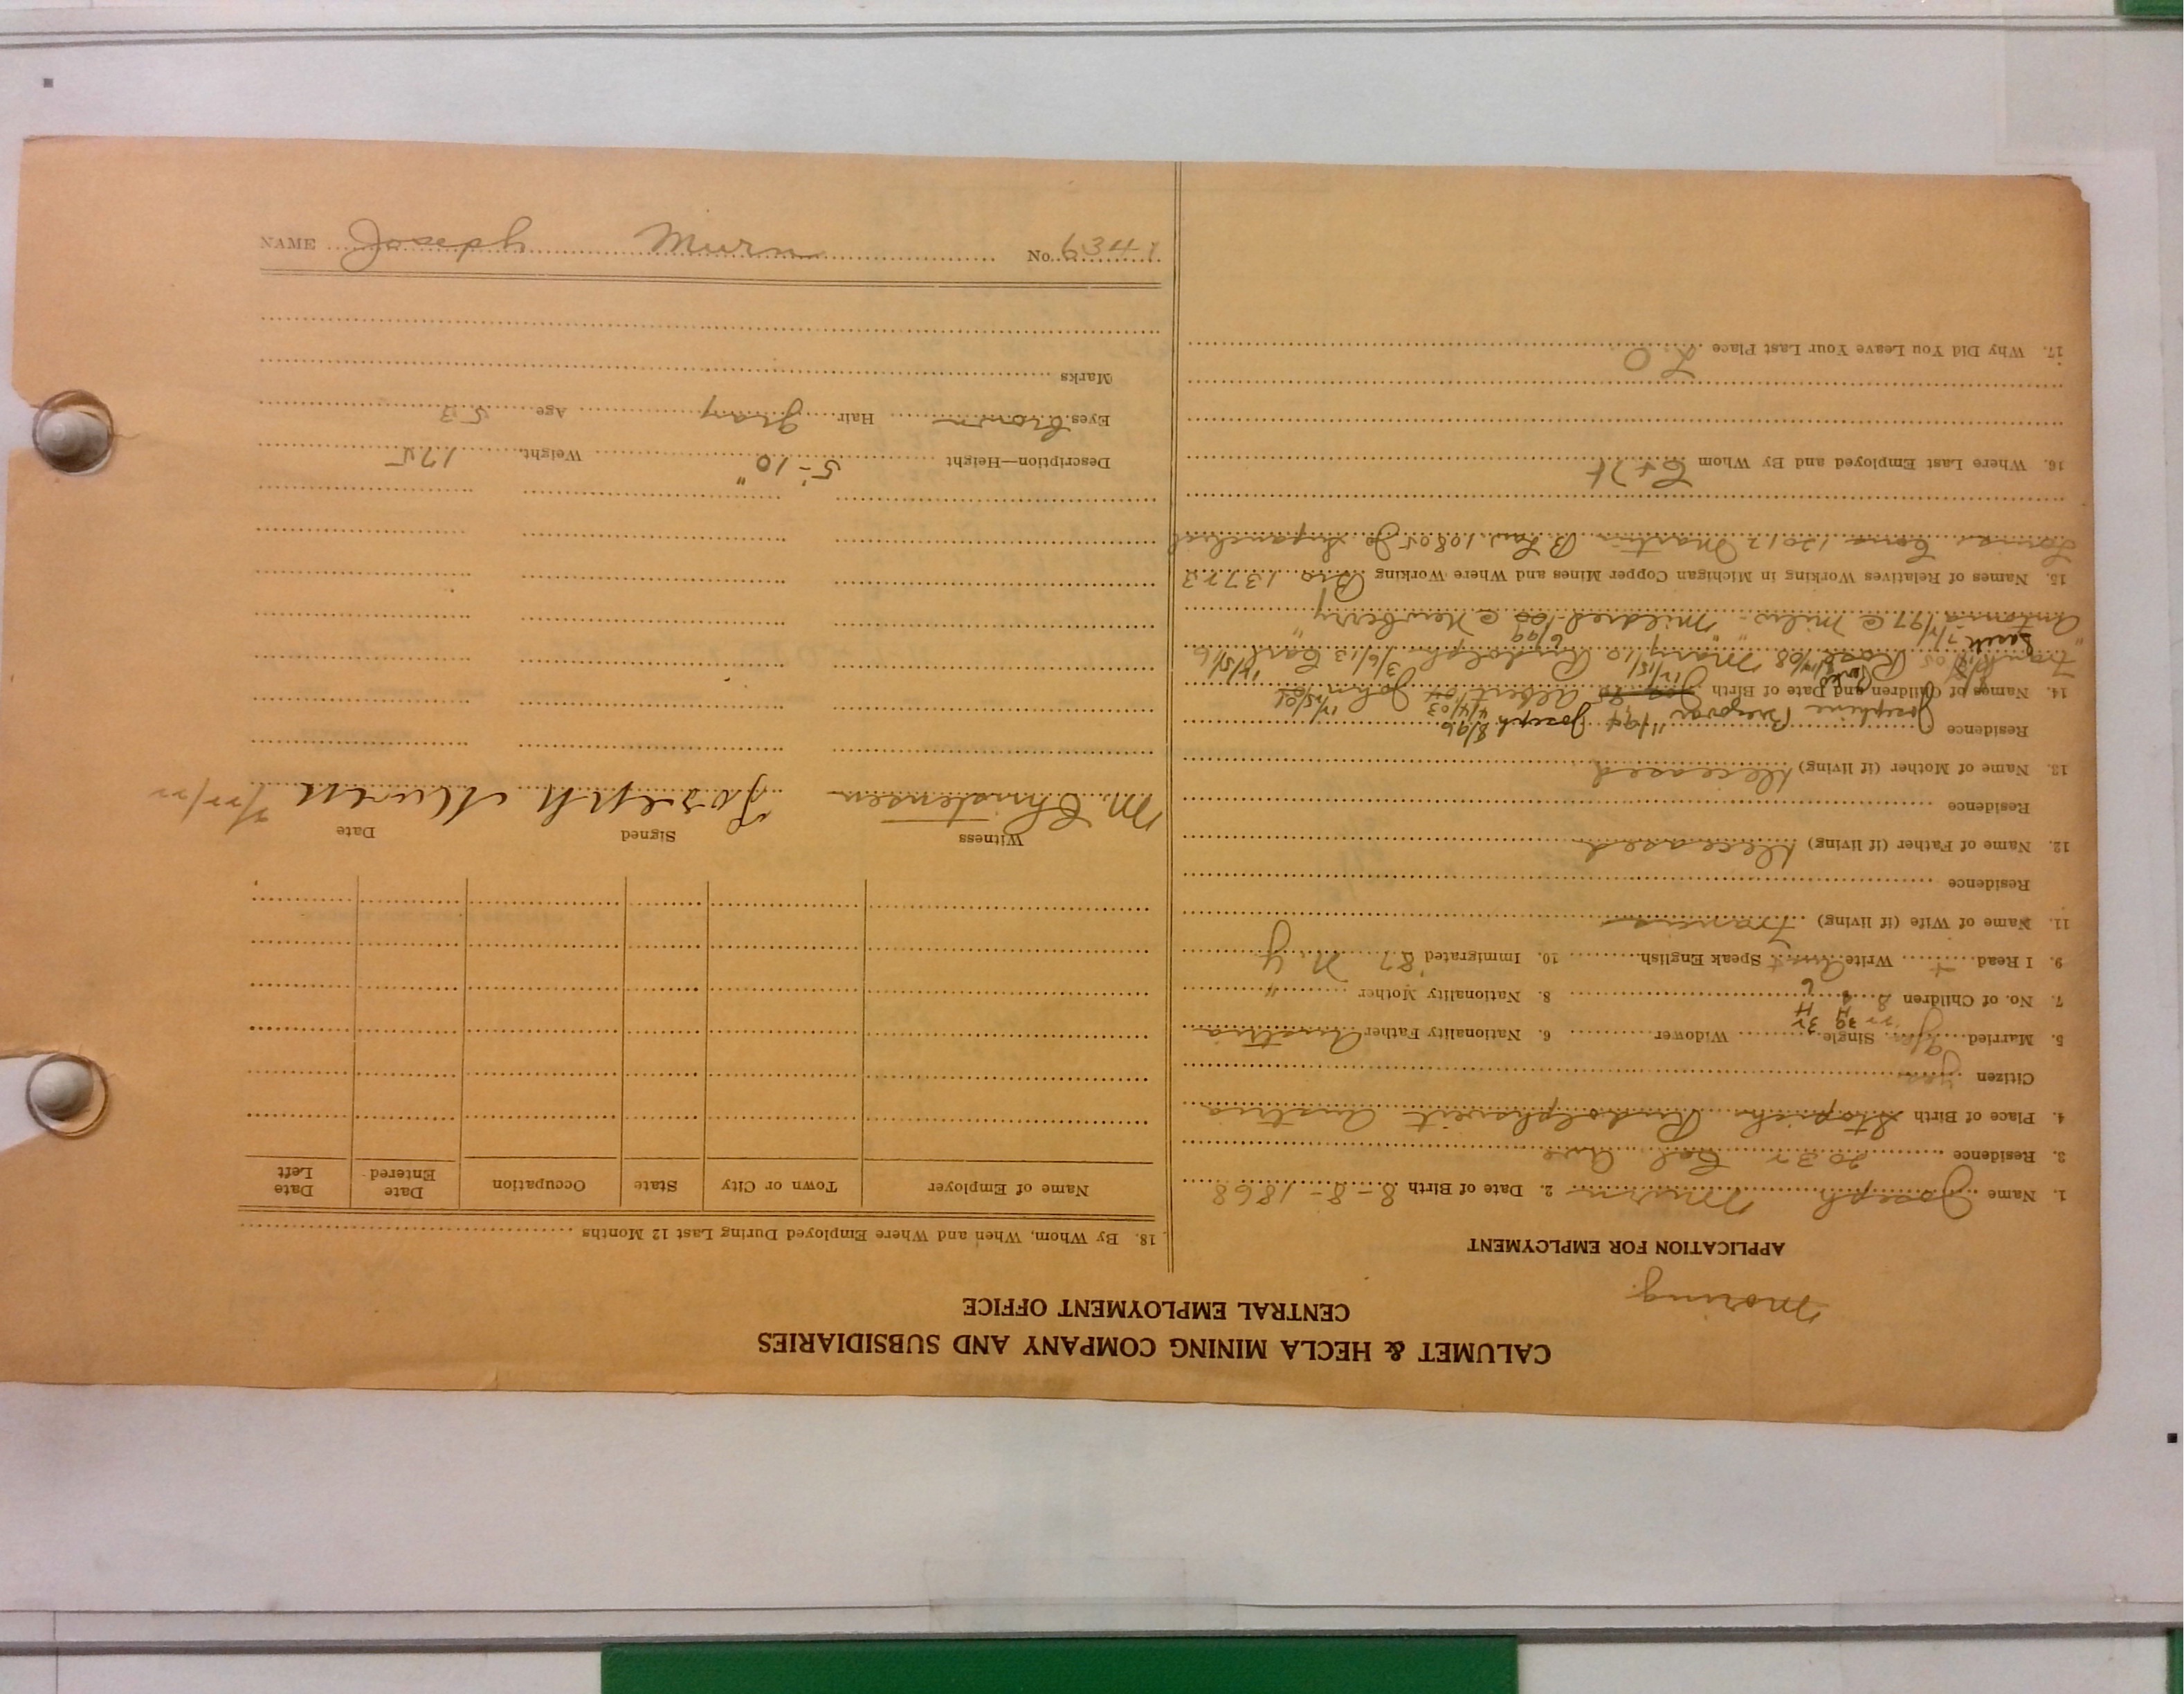 CALUMET & HECLA MINING COMPANY AND SUBSIDIARIES
CENTRAL EMPLOYMENT OFFICE
APPLICATION FOR EMPLOYMENT
1. Name Joseph Murn 2. Date of Birth 8-8-1868
3. Residence 2032 Cal Ave
4. Place of Birth Rudolphsveit Austria
Citizen yes
5. Married Single Widower 6. Nationality Father Austria
7. No. of Children 8 8. Nationality Mother "
9. I Read + Write Aust Speak English 10. Immigrated '87 N.Y.
11. Name of Wife (if living) Francis
Residence
12. Name of Father (if living) Deceased
Residence
13. Name of Mother (if living) Deceased
Residence
Josephine 11/94 Joseph 8/96 4/4/03
14. Names of Children and Date of Birth Albert John
Frank Rose Mary 10 Rudolph 3/6/13 Carl
Antonia 97 @ Milw. Mildred @ Newberry
15. Names of Relatives Working in Michigan Copper Mines and Where Working Bro 13722
12012 Martin B Law 10805 Jo
16. Where Last Employed and By Whom C+H
17. Why Did You Leave Your Last Place L.O
18. By Whom, When and Where Employed During Last 12 Months
Name of Employer Town or City State Occupation Date Entered Date Left
Witness Signed Date
M. Christensen Joseph Murn
Description—Height 5'-10" Weight 175
Eyes brown Hair gray Age 53
Marks
NAME Joseph Murn No. 6341